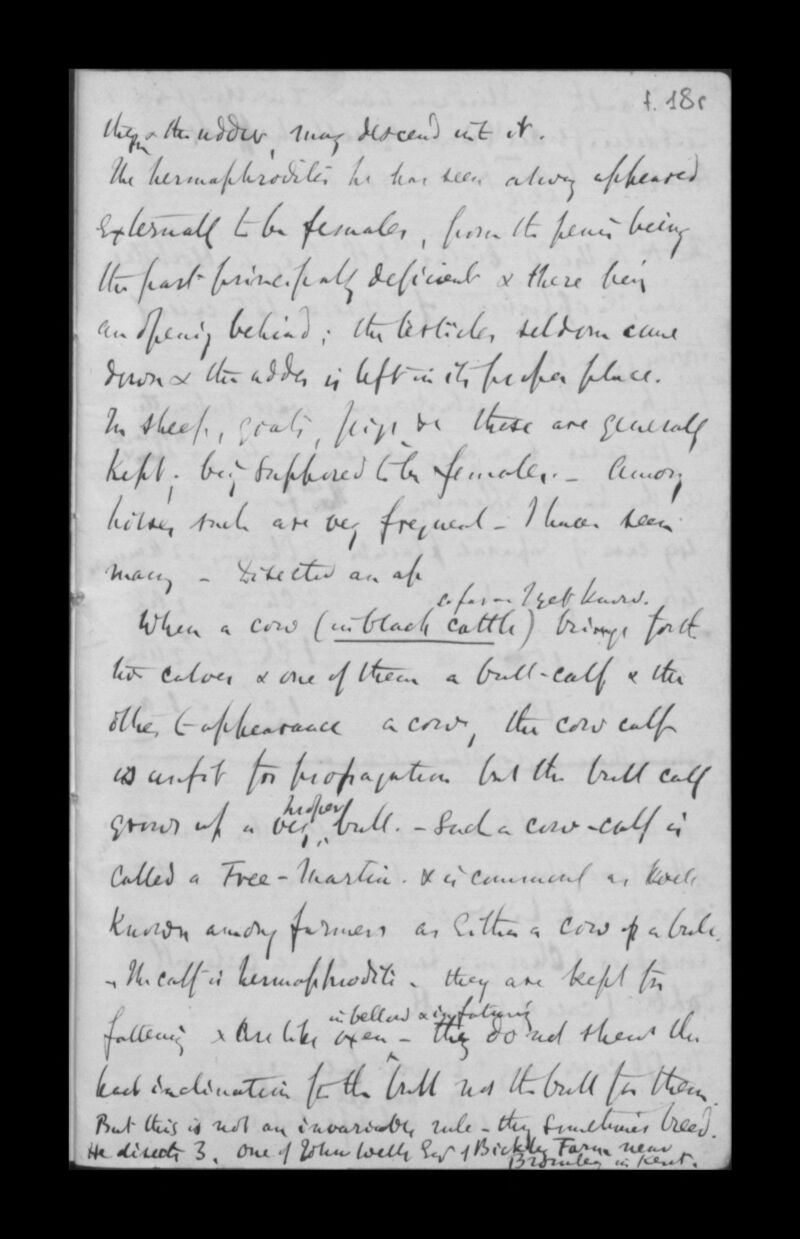 f. 18r
they & the udder, may descend into it.
The hermaphrodites he has seen always appeared
externally to be females, from the penis being
the part principally deficient & there being
an opening behind; the testicles seldom came
down & the udder is left in its proper place.
In sheep, goats, pigs &c these are generally
kept; being supposed to be females. - Among
horses such are very frequent - I have seen
many - Disected an ap
so far as I yet know.
When a cow (in black cattle) brings forth
two calves & one of them a bull-calf & the
other to appearance a cow, the cow calf
is unfit for propagation but the bull calf
proper
grows up a very bull. - Such a cow-calf is
called a Free-Martin. & is commonly as well
known among farmers as either a cow or a bull.
- The calf is hermaphrodite - they are kept for
in bellow & in fattening
fattening & are like oxen - they do not shew the
least inclination for the bull nor the bull for them.
But this is not an invariable rule - they sometimes breed.
He disects 3. one of John Wells Esq of Bickley Farm near
Bromley in Kent.